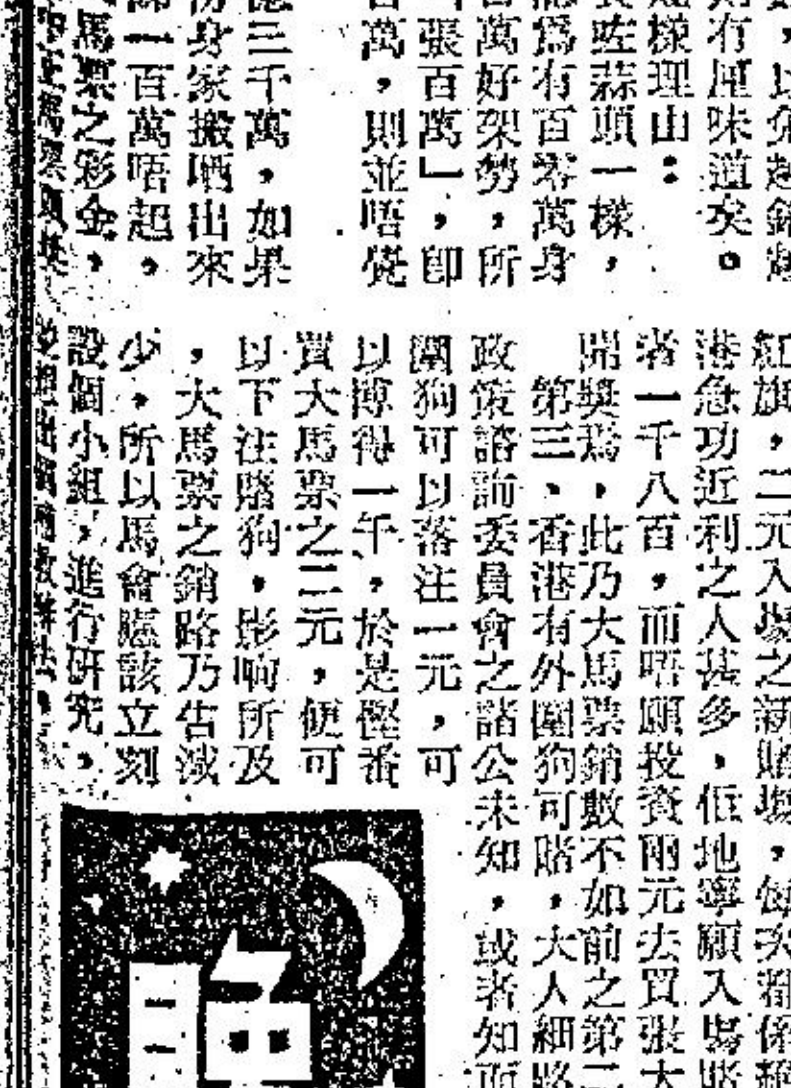 ，以免越銷越
則有厘味道矣。
樣理由：
咗蒜頭一樣，
爲有百零萬身
百萬好架勢，所
張百萬」，即
百萬，則並唔覺
三千萬，如果
身家搬晒出來
一百萬唔起。
馬票之彩金，
紅旗，二元入場之新賭場，每次都係
港急功近利之人甚多，佢地寧願入場賭
者一千八百，而唔願投資兩元去買張大
開獎焉，此乃大馬票銷數不如前之第二
第三、香港有外圍狗可賭，大人細路
政策諮詢委員會之諸公未知，或者知而
圍狗可以落注一元，可
以搏得一千，於是慳番
買大馬票之二元，便可
以下注賭狗，影响所及
，大馬票之銷路乃告減
少，所以馬會應該立刻
設個小組，進行研究，